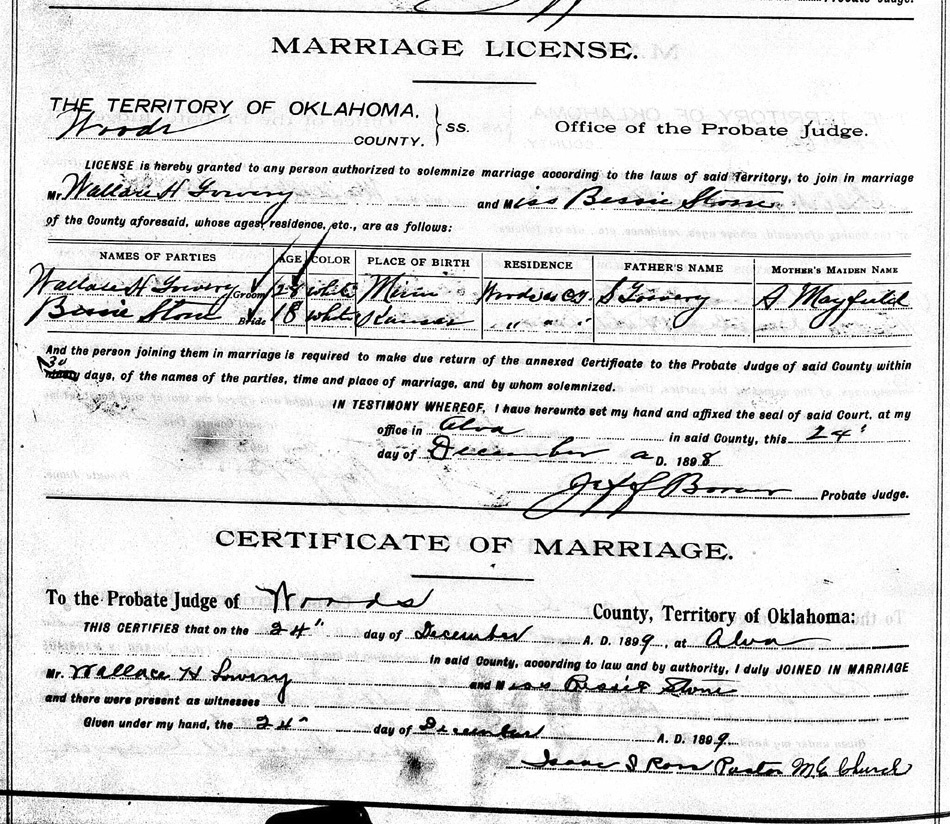 Probate Judge.
MARRIAGE LICENSE.
THE TERRITORY OF OKLAHOMA,
Woods COUNTY. } SS. Office of the Probate Judge.
LICENSE is hereby granted to any person authorized to solemnize marriage according to the laws of said Territory, to join in marriage
Mr Wallace H Lowery and Miss Bessie Stone
of the County aforesaid, whose ages, residence, etc., are as follows:
NAMES OF PARTIES AGE COLOR PLACE OF BIRTH RESIDENCE FATHER'S NAME MOTHER'S MAIDEN NAME
Wallace H Lowery Groom 28 white Woods Co S Lowery A Mayfield
Bessie Stone Bride 18 white Kansas " " "
And the person joining them in marriage is required to make due return of the annexed Certificate to the Probate Judge of said County within
30 days, of the names of the parties, time and place of marriage, and by whom solemnized.
IN TESTIMONY WHEREOF, I have hereunto set my hand and affixed the seal of said Court, at my
office in Alva in said County, this 24"
day of December A D. 1898
Probate Judge.
CERTIFICATE OF MARRIAGE.
To the Probate Judge of Woods County, Territory of Oklahoma:
THIS CERTIFIES that on the 24" day of December A. D. 1899, at Alva
in said County, according to law and by authority, I duly JOINED IN MARRIAGE
Mr. Wallace H Lowery and Miss Bessie Stone
and there were present as witnesses
Given under my hand, the 24" day of December A. D. 1899
Isaac S Ross Pastor M E Church